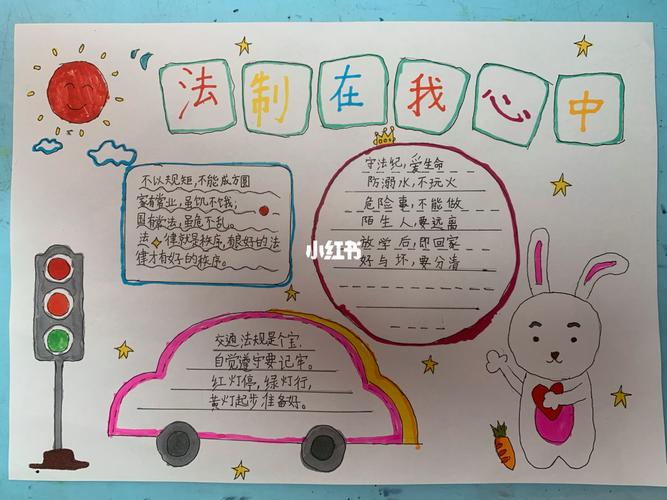 法制在我心中
不以规矩,不能成方圆
家有常业,虽饥不饿,
国有常法,虽危不乱。
法律就是秩序,有良好的法
律才有好的秩序。
守法纪,爱生命
防溺水,不玩火
危险事,不能做
陌生人,要远离
放学后,即回家
好与坏,要分清
小红书
交通法规是个宝,
自觉遵守要记牢。
红灯停,绿灯行,
黄灯起步准备好。